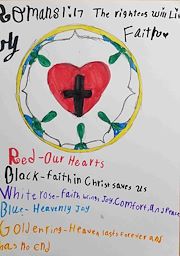 Romans 1:17 The righteous will Li
by
Faith
Red-Our Hearts
Black-faith in Christ saves us
White rose-faith wins Joy, Comfort, and Peace
Blue-Heavenly Joy
Golden ring-Heaven lasts forever and
has no end